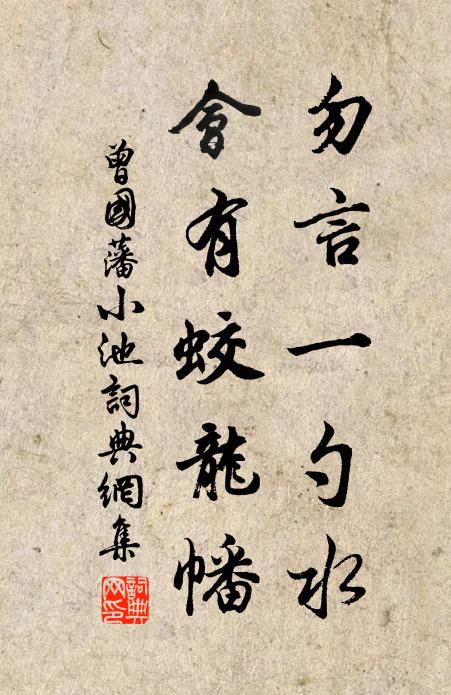 勿言一勺水
會有蛟龍幡
曾國藩小池詞典網集
詞典網印